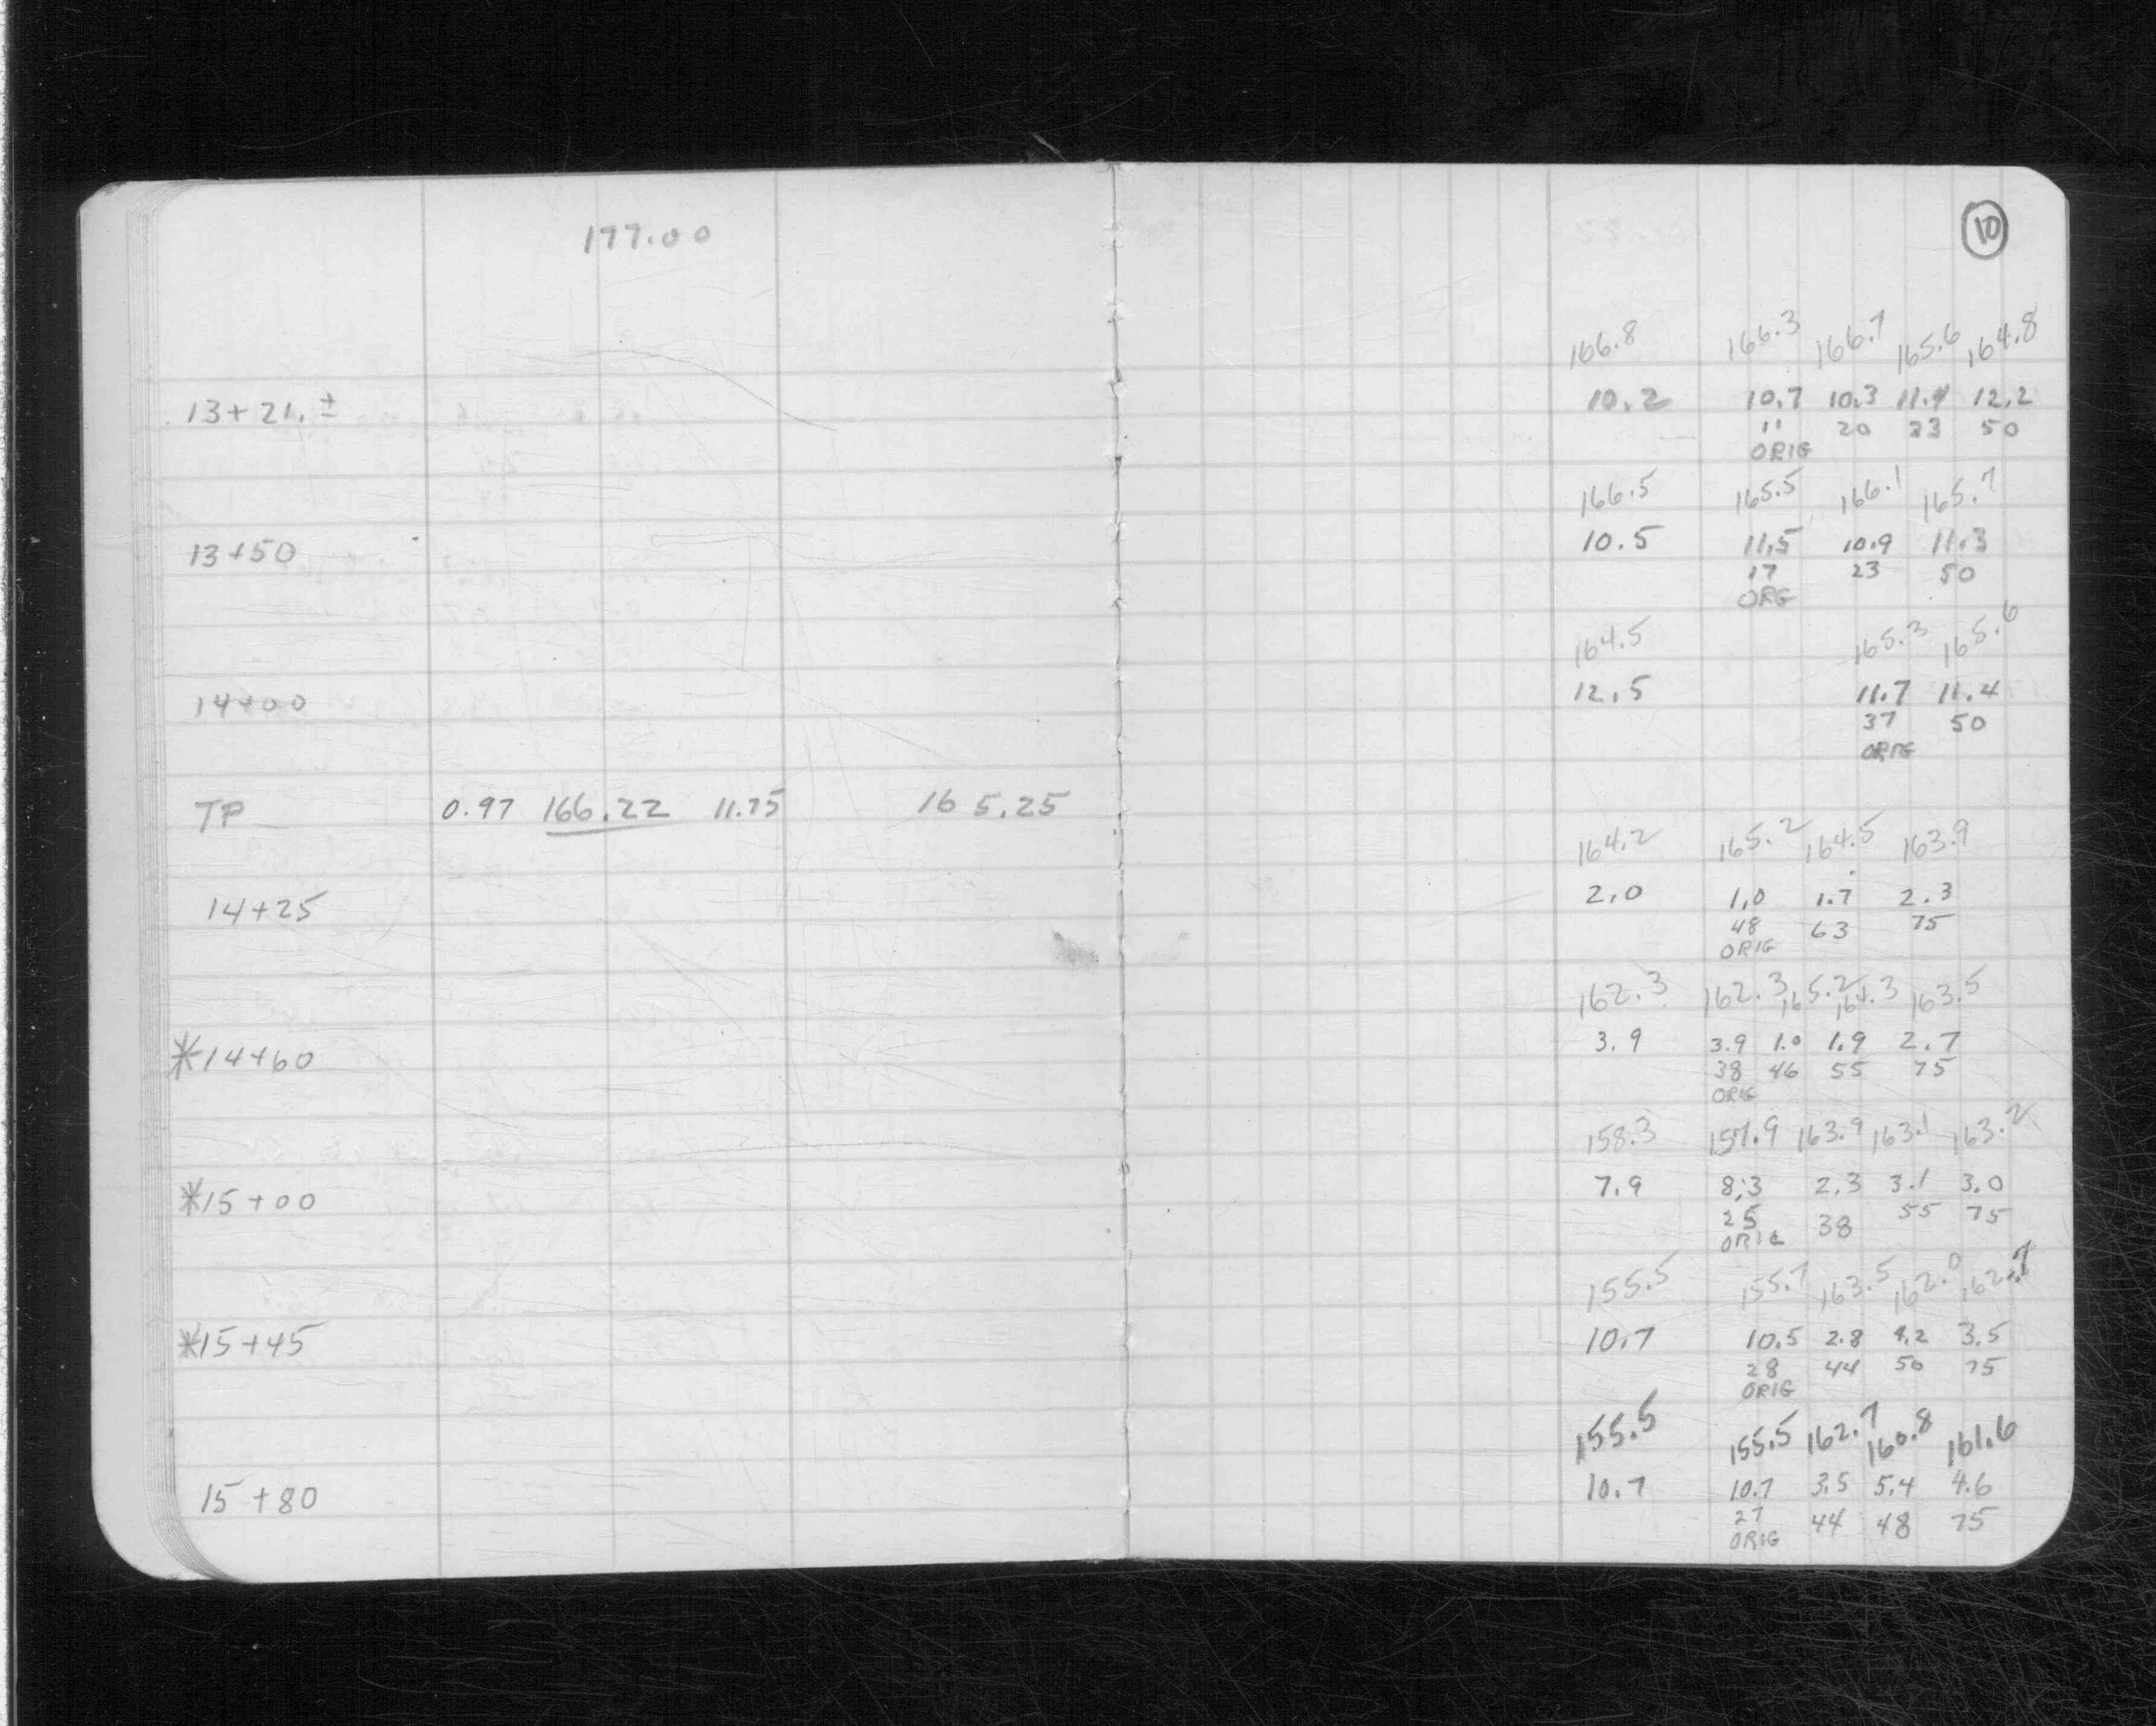 177.00
10
166.8 166.3 166.7 165.6 164.8
13+21.± 10.2 10.7 10.3 11.4 12.2
11 20 33 50
ORIG
166.5 165.5 166.1 165.7
13+50 10.5 11.5 10.9 11.3
17 23 50
ORG
164.5 165.3 165.6
14+00 12.5 11.7 11.4
37 50
ORIG
TP 0.97 166.22 11.75 165.25
164.2 165.2 164.5 163.9
14+25 2.0 1.0 1.7 2.3
48 63 75
ORIG
162.3 162.3 165.2 164.3 163.5
*14+60 3.9 3.9 1.0 1.9 2.7
38 46 55 75
ORIG
158.3 157.9 163.9 163.1 163.2
*15+00 7.9 8.3 2.3 3.1 3.0
25 38 55 75
ORIG
155.5 155.7 163.5 162.0 162.7
*15+45 10.7 10.5 2.8 4.2 3.5
28 44 50 75
ORIG
155.5 155.5 162.7 160.8 161.6
15+80 10.7 10.7 3.5 5.4 4.6
27 44 48 75
ORIG